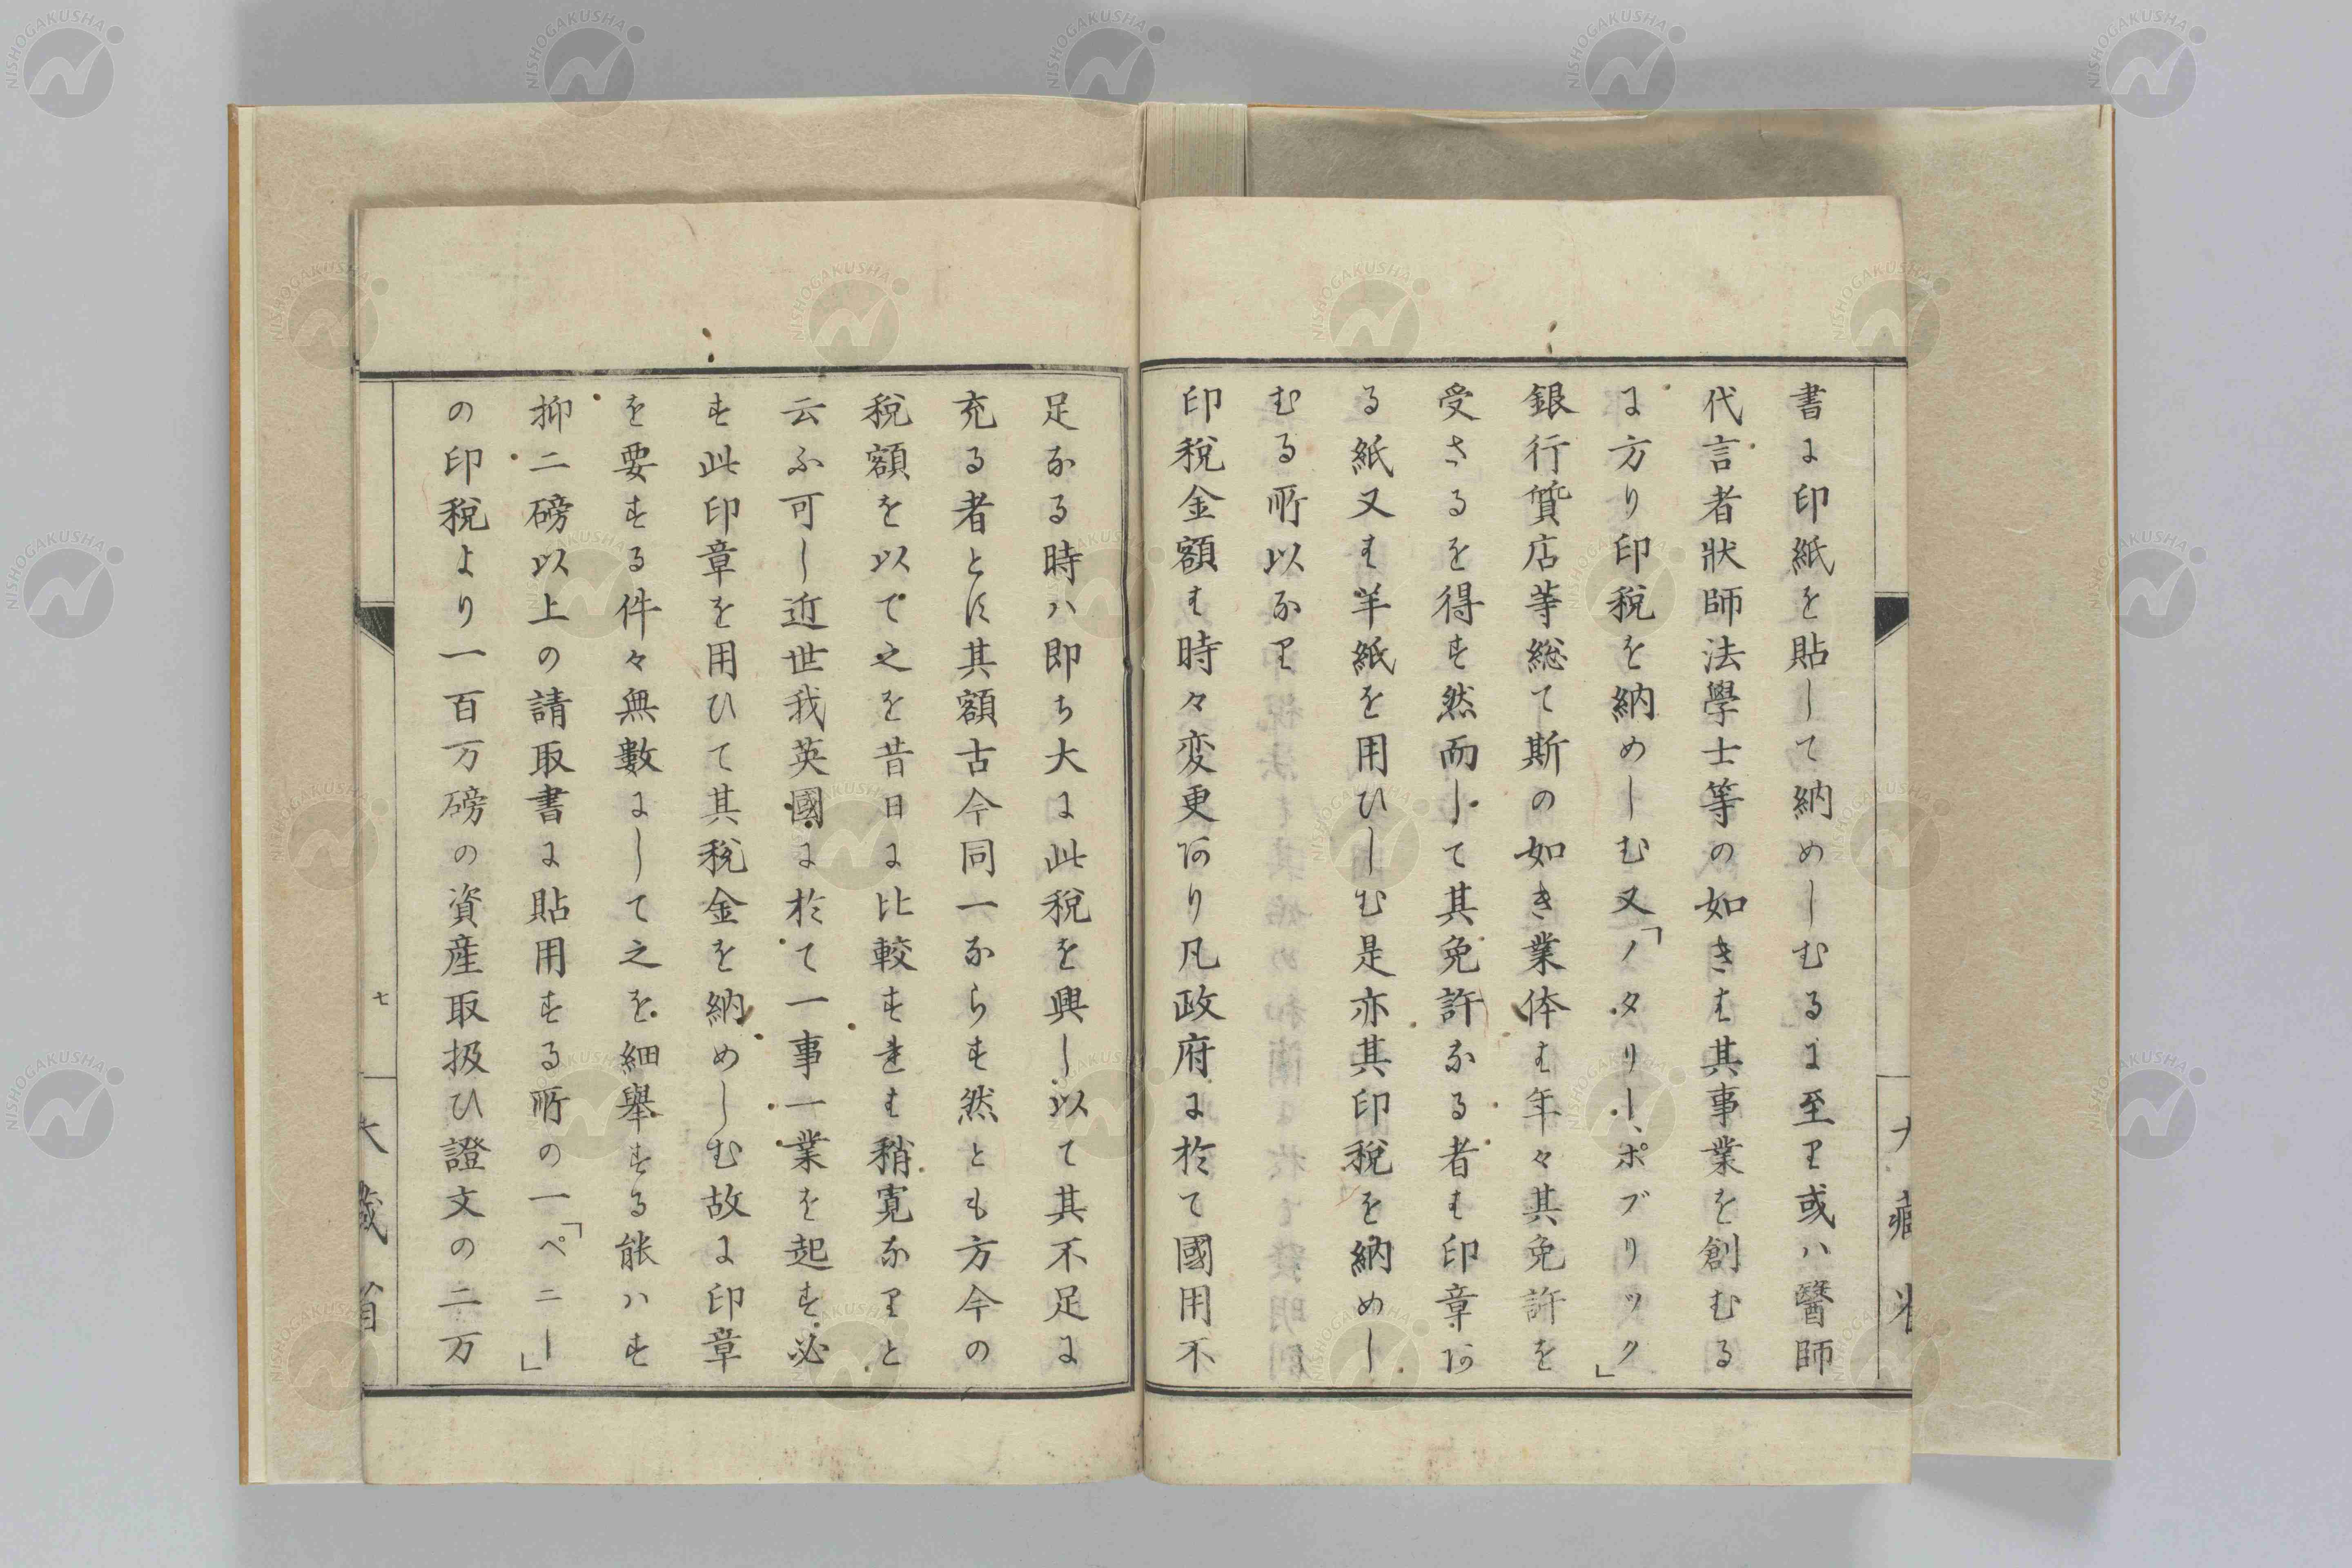 書に印紙を貼して納めしむるに至り或ハ醫師
代言者狀師法學士等の如きは其事業を創むる
に方り印税を納めしむ又「ノタリー、ポブリック」
銀行質店等総て斯の如き業体は年々其免許を
受さるを得す然而して其免許なる者は印章あ
る紙又は羊紙を用ひしむ是亦其印税を納めし
むる所以なり
印税金額は時々変更あり凡政府に於て國用不
足なる時ハ即ち大に此税を興し以て其不足に
充る者とす其額古今同一ならす然とも方今の
税額を以て之を昔日に比較すれは稍寛なりと
云ふ可し近世我英國に於て一事一業を起す必
す此印章を用ひて其税金を納めしむ故に印章
を要する件々無數にして之を細舉する能ハす
抑二磅以上の請取書に貼用する所の一「ペニー」
の印税より一百万磅の資産取扱ひ證文の二万
七
大藏省
NISHOGAKUSHA